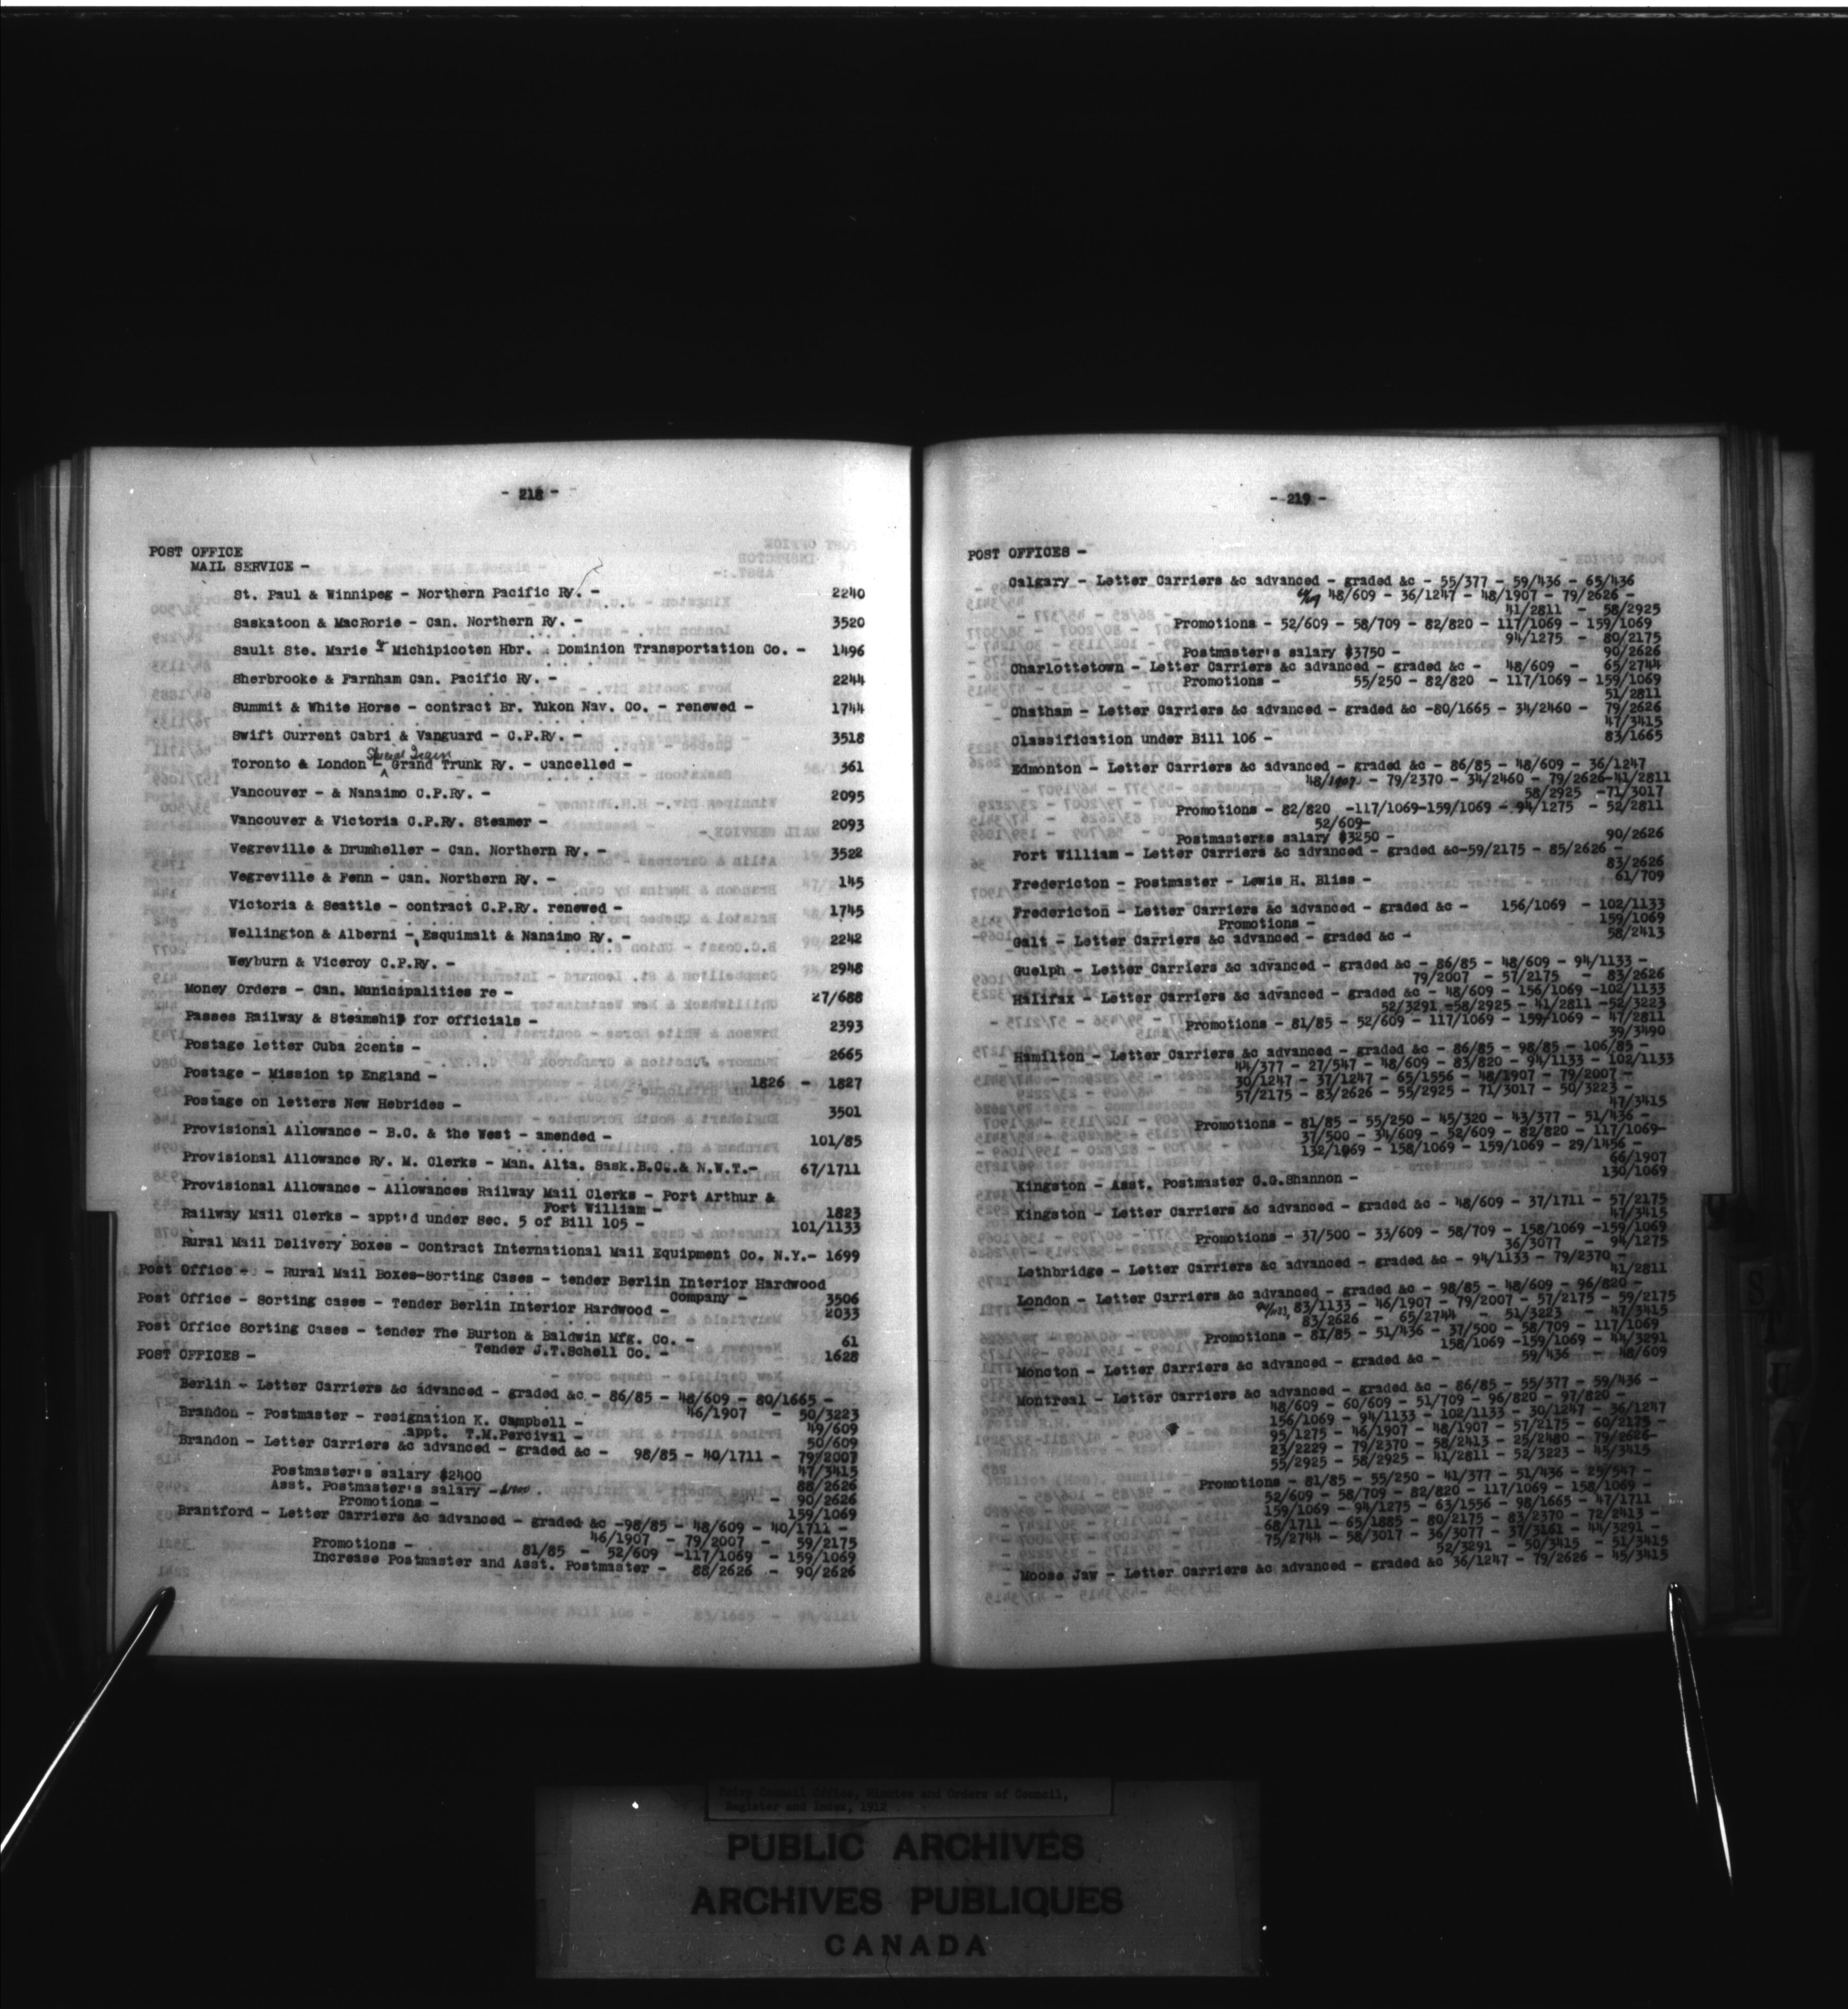 - 218 -
POST OFFICE
MAIL SERVICE -
St. Paul & Winnipeg - Northern Pacific Ry. - 2240
Saskatoon & MacRorie - Can. Northern Ry. - 3520
Sault Ste. Marie & Michipicoten Hbr. - Dominion Transportation Co. - 1496
Sherbrooke & Farnham Can. Pacific Ry. - 2244
Summit & White Horse - contract Br. Yukon Nav. Co. - renewed - 1744
Swift Current Cabri & Vanguard - C.P.Ry. - 3518
Special Train
Toronto & London - Grand Trunk Ry. - cancelled - 361
Vancouver - & Nanaimo C.P.Ry. - 2095
Vancouver & Victoria C.P.Ry. Steamer - 2093
Vegreville & Drumheller - Can. Northern Ry. - 3522
Vegreville & Fenn - Can. Northern Ry. - 145
Victoria & Seattle - contract C.P.Ry. renewed - 1745
Wellington & Alberni - Esquimalt & Nanaimo Ry. - 2242
Weyburn & Viceroy C.P.Ry. - 2948
Money Orders - Can. Municipalities re - 27/688
Passes Railway & Steamship for officials - 2393
Postage letter Cuba 2cents - 2665
Postage - Mission to England - 1826 - 1827
Postage on letters New Hebrides - 3501
Provisional Allowance - B.C. & the West - amended - 101/85
Provisional Allowance Ry. M. Clerks - Man. Alta. Sask.B.C.& N.W.T.- 67/1711
Provisional Allowance - Allowances Railway Mail Clerks - Port Arthur &
Fort William - 1823
Railway Mail Clerks - appt'd under Sec. 5 of Bill 105 - 101/1133
Rural Mail Delivery Boxes - Contract International Mail Equipment Co. N.Y.- 1699
Post Office - - Rural Mail Boxes-Sorting Cases - tender Berlin Interior Hardwood
Company - 3506
Post Office - Sorting cases - Tender Berlin Interior Hardwood - 2033
Post Office Sorting Cases - tender The Burton & Baldwin Mfg. Co. - 61
Tender J.T.Schell Co. - 1628
POST OFFICES -
Berlin - Letter Carriers &c advanced - graded &c - 86/85 - 48/609 - 80/1665 -
46/1907 - 50/3223
Brandon - Postmaster - resignation K. Campbell - 49/609
appt. T.M.Percival - 50/609
Brandon - Letter Carriers &c advanced - graded &c - 98/85 - 40/1711 - 79/2007
47/3415
Postmaster's salary $2400 88/2626
Asst. Postmaster's salary - - 90/2626
Promotions - 159/1069
Brantford - Letter Carriers &c advanced - graded &c -98/85 - 48/609 - 40/1711 -
46/1907 - 79/2007 - 59/2175
Promotions - 81/85 - 52/609 -117/1069 - 159/1069
Increase Postmaster and Asst. Postmaster - 88/2626 - 90/2626
- 219 -
POST OFFICES -
Calgary - Letter Carriers &c advanced - graded &c - 55/377 - 59/436 - 65/436
48/609 - 36/1247 - 48/1907 - 79/2626 -
41/2811 - 58/2925
Promotions - 52/609 - 58/709 - 82/820 - 117/1069 - 159/1069
94/1275 - 80/2175
Postmaster's salary $3750 - 90/2626
Charlottetown - Letter Carriers &c advanced - graded &c - 48/609 - 65/2744
Promotions - 55/250 - 82/820 - 117/1069 - 159/1069
51/2811
Chatham - Letter Carriers &c advanced - graded &c -80/1665 - 34/2460 - 79/2626
47/3415
Classification under Bill 106 - 83/1665
Edmonton - Letter Carriers &c advanced - graded &c - 86/85 - 48/609 - 36/1247
48/1907 - 79/2370 - 34/2460 - 79/2626-41/2811
58/2925 -71/3017
Promotions - 82/820 -117/1069-159/1069 - 94/1275 - 52/2811
52/609-
Postmasters salary $3250 - 90/2626
Fort William - Letter Carriers &c advanced - graded &c-59/2175 - 85/2626 -
83/2626
Fredericton - Postmaster - Lewis H. Bliss - 61/709
Fredericton - Letter Carriers &c advanced - graded &c - 156/1069 - 102/1133
Promotions - 159/1069
Galt - Letter Carriers &c advanced - graded &c - 58/2413
Guelph - Letter Carriers &c advanced - graded &c - 86/85 - 48/609 - 94/1133 -
79/2007 - 57/2175 - 83/2626
Halifax - Letter Carriers &c advanced - graded &c - 48/609 - 156/1069 -102/1133
52/3291 -58/2925 - 41/2811 -52/3223
Promotions - 81/85 - 52/609 - 117/1069 - 159/1069 - 47/2811
39/3490
Hamilton - Letter Carriers &c advanced - graded &c - 86/85 - 98/85 - 106/85 -
44/377 - 27/547 - 48/609 - 83/820 - 94/1133 - 102/1133
30/1247 - 37/1247 - 65/1556 - 48/1907 - 79/2007 -
57/2175 - 83/2626 - 55/2925 - 71/3017 - 50/3223 -
47/3415
Promotions - 81/85 - 55/250 - 45/320 - 43/377 - 51/436 -
37/500 - 34/609 - 52/609 - 82/820 - 117/1069-
132/1069 - 158/1069 - 159/1069 - 29/1456 -
66/1907
Kingston - Asst. Postmaster C.G.Shannon - 130/1069
Kingston - Letter Carriers &c advanced - graded &c - 48/609 - 37/1711 - 57/2175
47/3415
Promotions - 37/500 - 33/609 - 58/709 - 158/1069 -159/1069
36/3077 - 94/1275
Lethbridge - Letter Carriers &c advanced - graded &c - 94/1133 - 79/2370 -
41/2811
London - Letter Carriers &c advanced - graded &c - 98/85 - 48/609 - 96/820 -
83/1133 - 46/1907 - 79/2007 - 57/2175 - 59/2175
83/2626 - 65/2744 - 51/3223 - 47/3415
Promotions - 81/85 - 51/436 - 37/500 - 58/709 - 117/1069
158/1069 -159/1069 - 44/3291
Moncton - Letter Carriers &c advanced - graded &c - 59/436 - 48/609
Montreal - Letter Carriers &c advanced - graded &c - 86/85 - 55/377 - 59/436 -
48/609 - 60/609 - 51/709 - 96/820 - 97/820 -
156/1069 - 94/1133 - 102/1133 - 30/1247 - 36/1247
95/1275 - 46/1907 - 48/1907 - 57/2175 - 60/2175 -
23/2229 - 79/2370 - 58/2413 - 25/2480 - 79/2626-
55/2925 - 58/2925 - 41/2811 - 52/3223 - 45/3415
Promotions - 81/85 - 55/250 - 41/377 - 51/436 - 25/547 -
52/609 - 58/709 - 82/820 - 117/1069 - 158/1069 -
159/1069 - 94/1275 - 63/1556 - 98/1665 - 47/1711
68/1711 - 65/1885 - 80/2175 - 83/2370 - 72/2413 -
75/2744 - 58/3017 - 36/3077 - 37/3161 - 44/3291 -
52/3291 - 50/3415 - 51/3415
Moose Jaw - Letter Carriers &c advanced - graded &c 36/1247 - 79/2626 - 45/3415
Privy Council Office, Minutes and Orders of Council,
Register and Index, 1912
PUBLIC ARCHIVES
ARCHIVES PUBLIQUES
CANADA